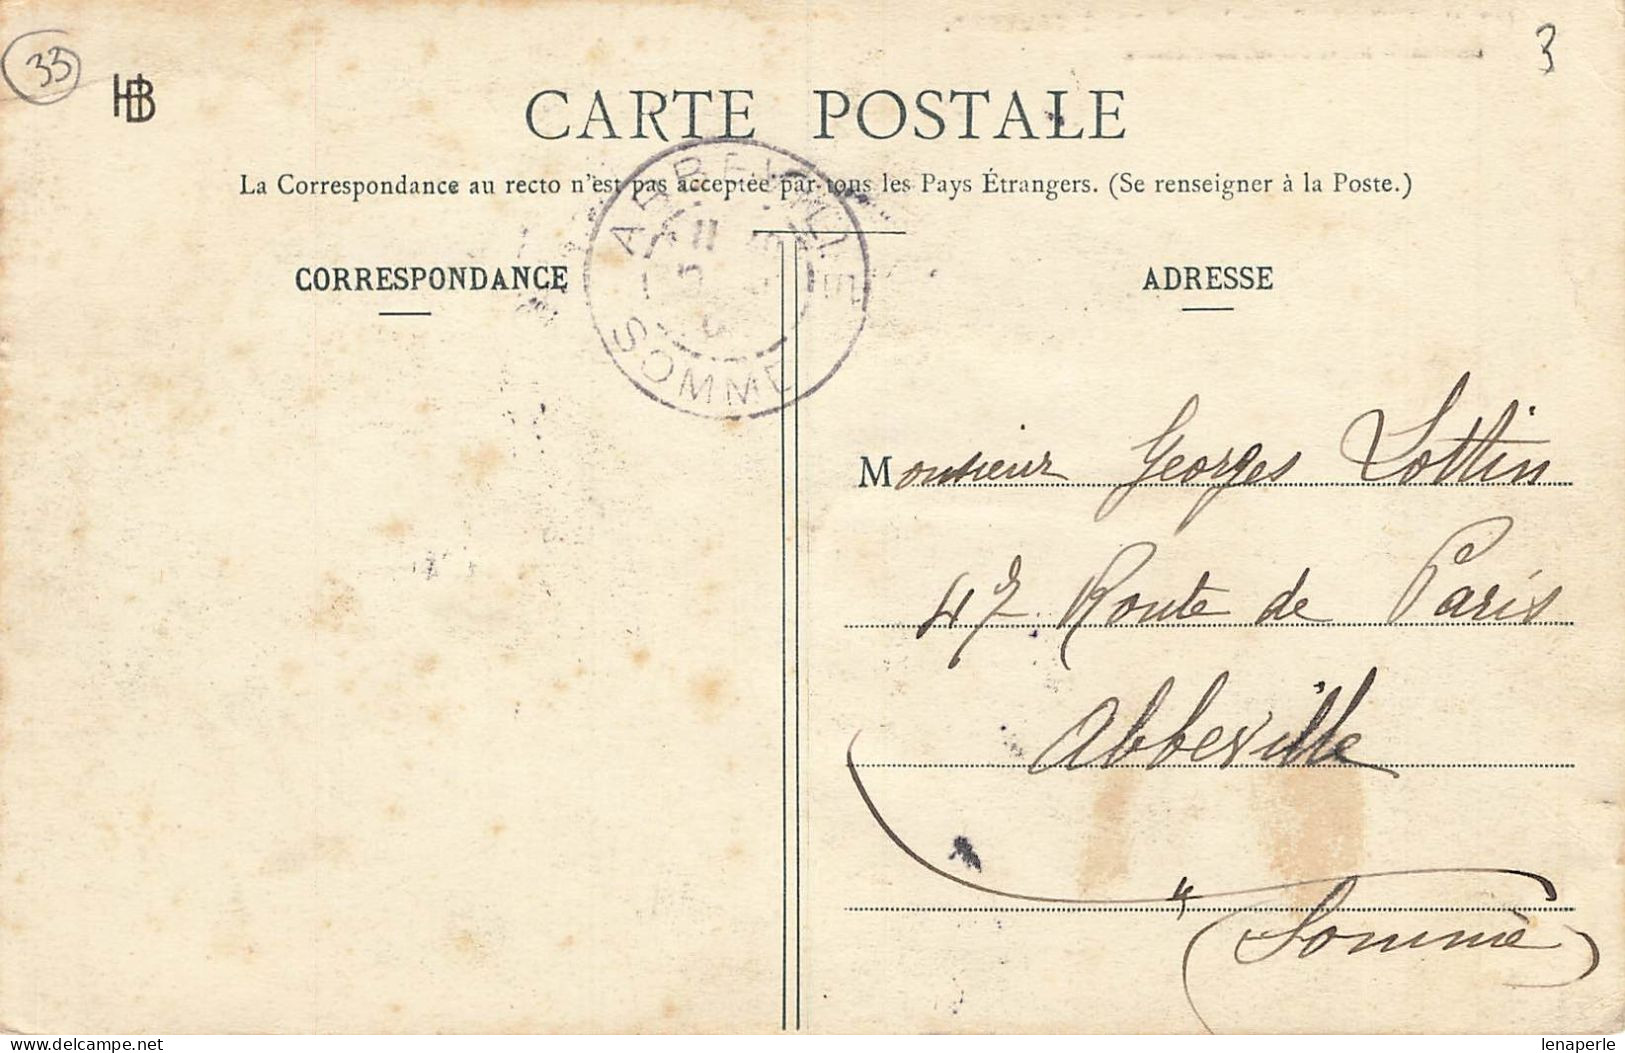 33
HB
3
CARTE POSTALE
La Correspondance au recto n'est pas acceptée par tous les Pays Étrangers. (Se renseigner à la Poste.)
ABBEVILLE
SOMME
CORRESPONDANCE
ADRESSE
Monsieur Georges Lottin
47 Route de Paris
Abbeville
(Somme)
delcampe.net
lenaperle